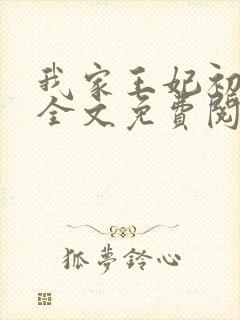 我家王妃初
全文免費閱
狐夢鈴心